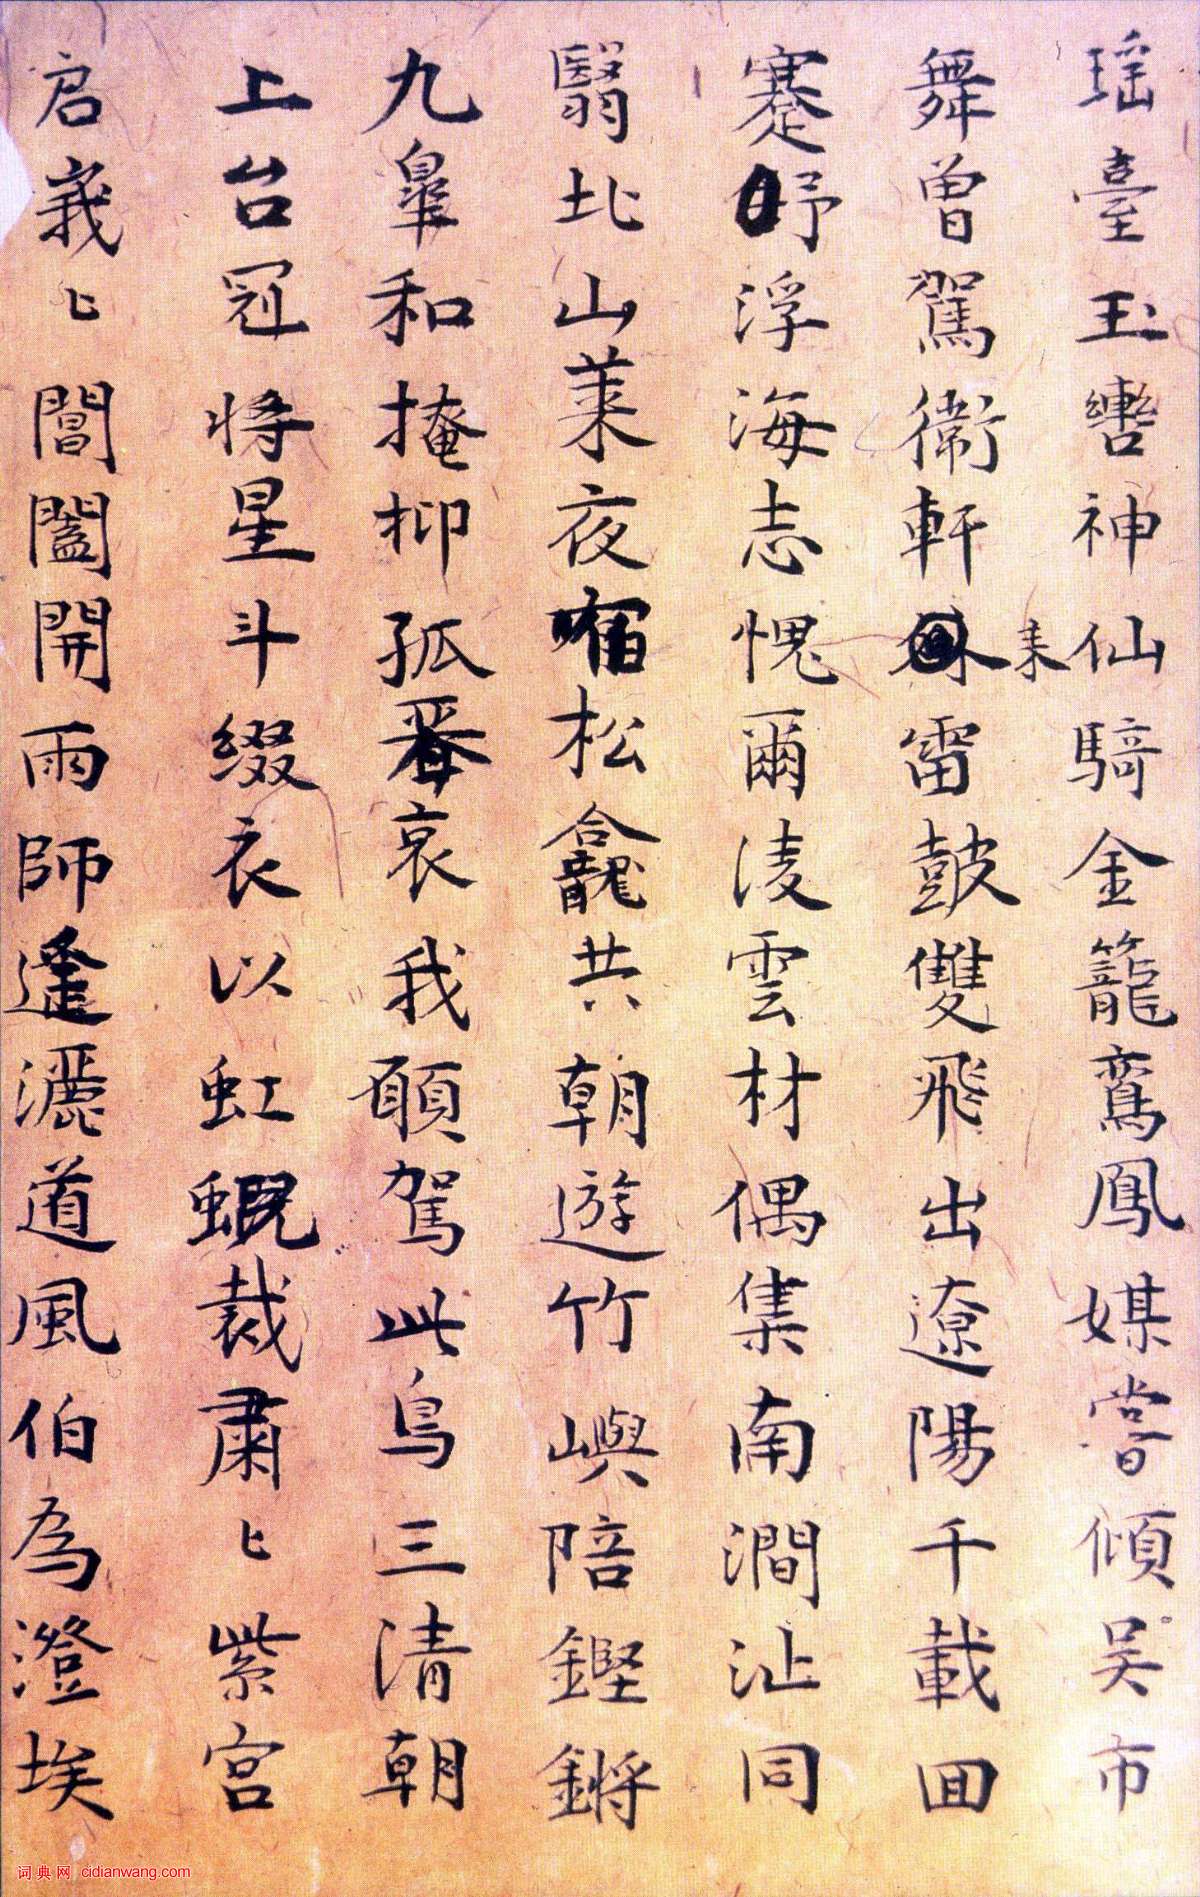 瑶臺玉轡神仙騎金籠鸞鳳媒嘗傾吴市
舞曾駕衛軒来雷鼓雙飛出遼陽千載囬
蹇予浮海志愧爾凌雲材偶集南澗沚同
翳北山莱夜宿松龕共朝遊竹嶼陪鏗鏘
九皐和掩抑孤琴哀我願駕此鳥三清朝
上台冠将星斗綴衣以虹蜺裁肅〻紫宮
啓峩〻閶闔開雨師逢灑道風伯為澄埃
词典网 cidianwang.com